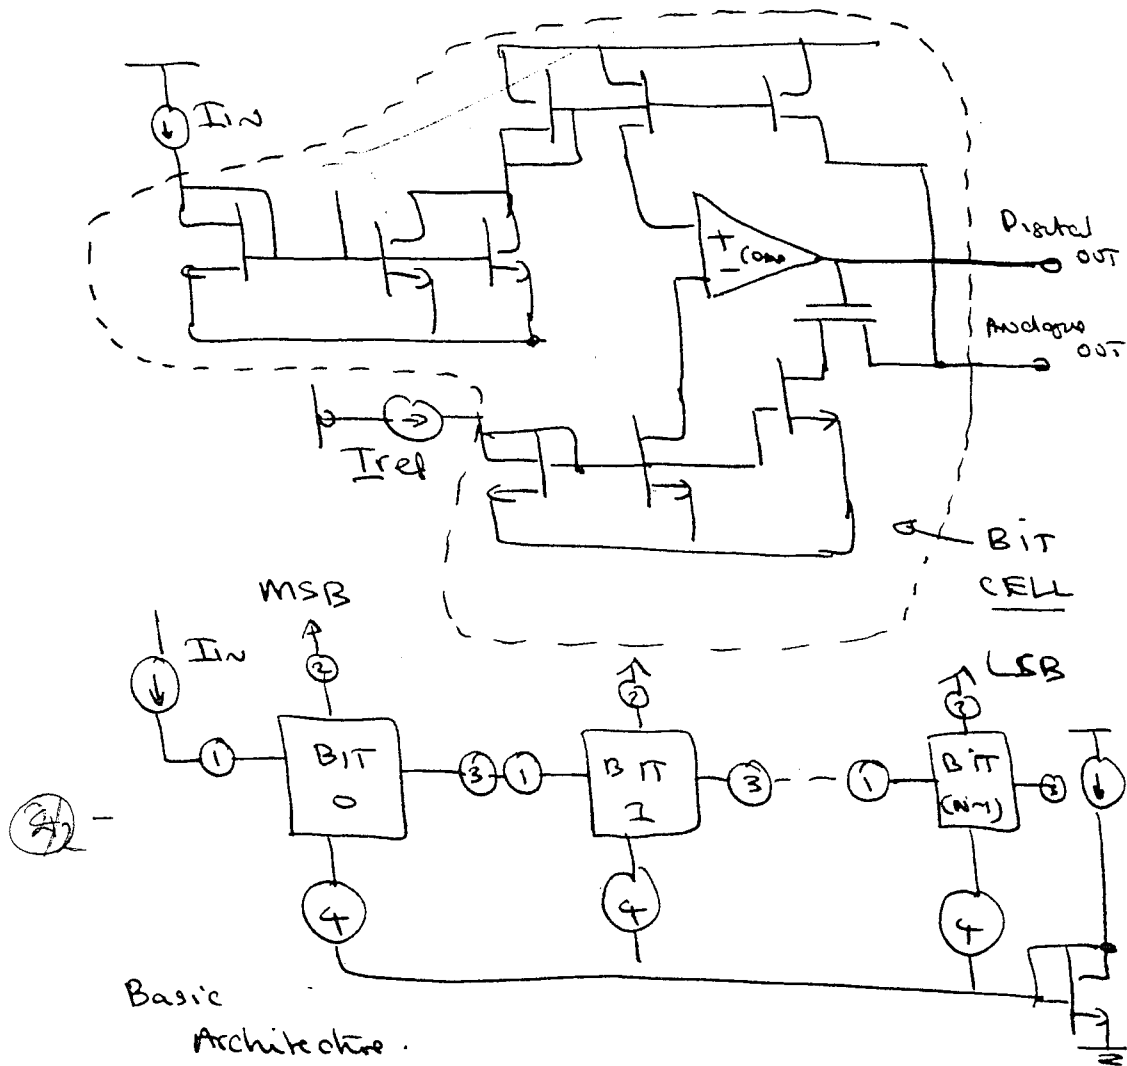 IIN
+
-
Comp
Digital
OUT
Analogue
OUT
Iref
BIT
CELL
MSB
IIN
LSB
2
2
2
1
BIT
0
3
1
BIT
1
3
1
BIT
(N-1)
3
4
4
4
Basic
Architecture.